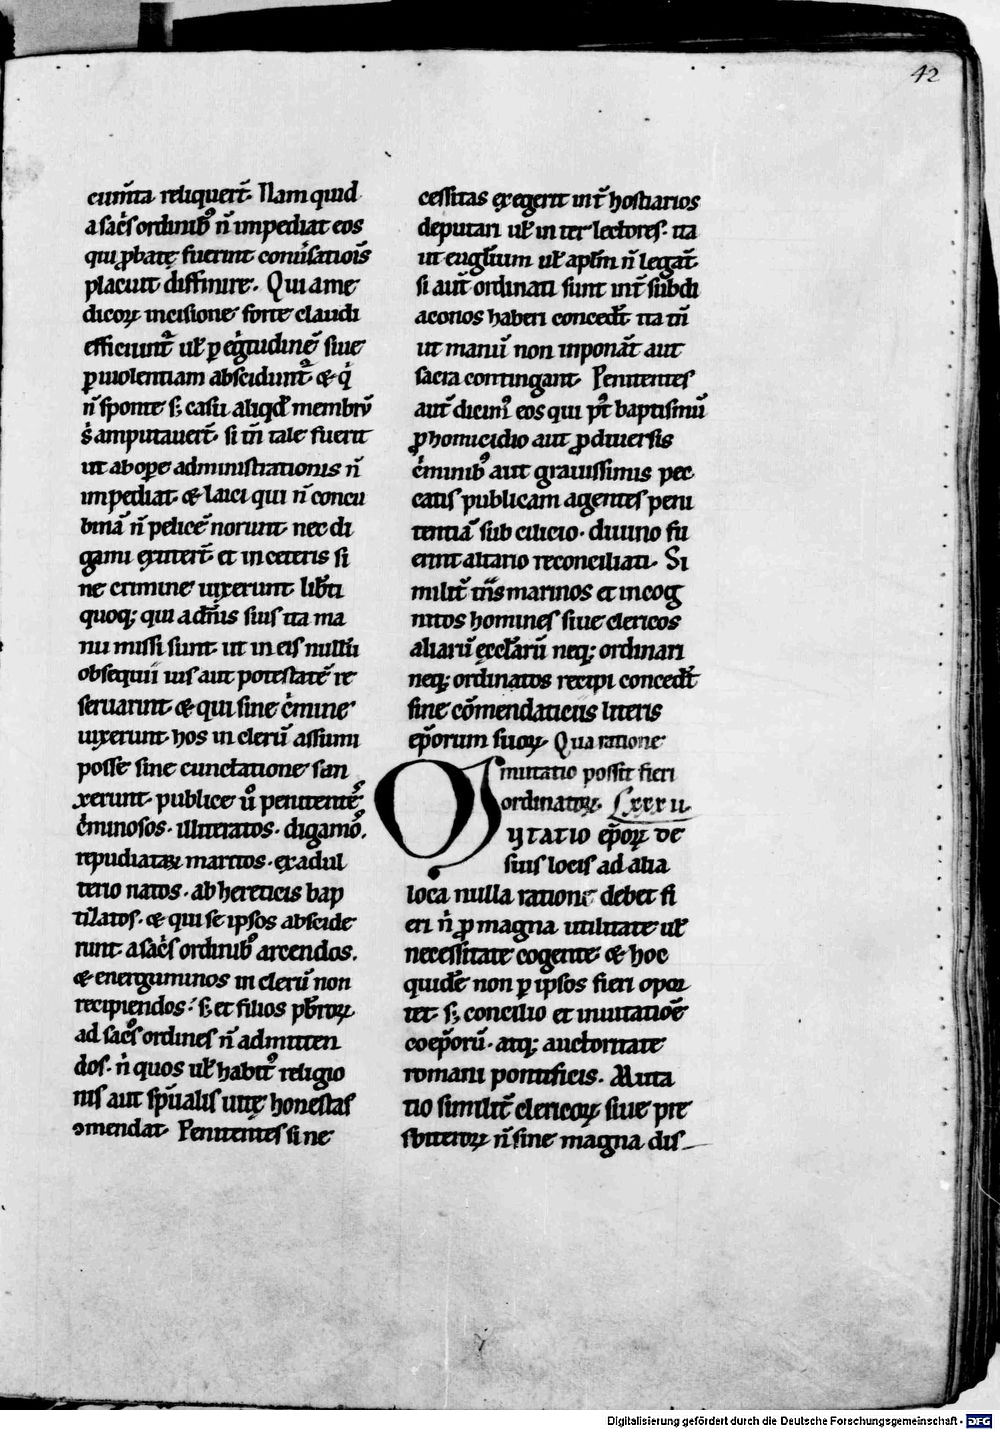 42
cum̃ta reliquert̃. Nam quid
a sac̓s ordinib⁹ ñ impediat eos
qui ꝓbatę fuerint conũsatiõis
placuit diffinire. Qui a me
dicoꝝ incisione forte claudi
efficiunt᷑ ul̃ ꝑ ęg̓tudinẽ siue
ꝑ uiolentiam abscidunt᷑ & q̓
ñ sponte s; casu aliqd̃ membrũ
s̓ amputauert̃. si tm̃ tale fuerit
ut ab opẹ administrationis ñ
impediat. & laici qui ñ concu
binã ñ pelicẽ norunt. nec di
gami extitert̃ et in ceteris si
ne crimine uixerunt. lib̃ti
quoq; qui a dñis suis ita ma
nu missi sunt. ut in eis nullũ
obsequii ius aut potestatẽ re
seruarint & qui sine c̓mine
uixerunt. hos in clerũ assumi
posse sine cunctatione san
xerunt. publice ũ penitentẽs
c̓minosos. illiteratos. digamos.
repudiataꝝ maritos. ex adul
terio natos. ab hereticis bap
tizatos. & qui se ipsos abscide
runt. a sac̓s ordinib⁹ arcendos.
& energuminos in clerũ non
recipiendos. s; et filios pb̃roꝝ
ad sac̓os ordines ñ admitten
dos. ñ quos ul̃ habit⁹ religio
nis aut sp̃ualis uitę honestas
ꝯmendat. Penitentes si ne
cessitas exegerit int̃ hostiarios
deputari ul̃ inter lectores. ita
ut eugl̃ium ul̃ aplm̃ ñ legat̃.
si aut̃ ordinati sunt int̃ subdi
aconos haberi conced̃t ita tm̃
ut manũ non inponãt aut
sacra contingant. Penitentes
aut̃ dicim⁹ eos qui p⁹t baptismũ
ꝓ homicidio aut ꝓ diuersis
c̓minib⁹ aut grauissimis pec
catis publicam agentes peni
tentiã sub cilicio. diuino fu
erint altario reconciliati. Si
milit̃ t̃ns marinos et incog
nitos homines siue clericos
aliarũ ęccl̃arũ neq; ordinari
neq; ordinatos recipi conced̃t
sine cõmendaticiis literis
ep̃orum suoꝝ. Qua ratione
mutatio possit fieri
ordinatoꝝ. Lxxxii.
Mutatio ep̃oꝝ de
suis locis ad alia
loca nulla ratione debet fi
eri ñ ꝓ magna utilitate ul̃
necessitate cogente & hoc
quidẽ non ꝑ ipsos fieri opor
tet. s; concilio et inuitatiõe
coep̃orũ. atq; auctoritate
romani pontificis. Muta
tio similit̃ clericoꝝ siue pre
sbiteroꝝ ñ sine magna dis
Digitalisierung gefördert durch die Deutsche Forschungsgemeinschaft - DFG